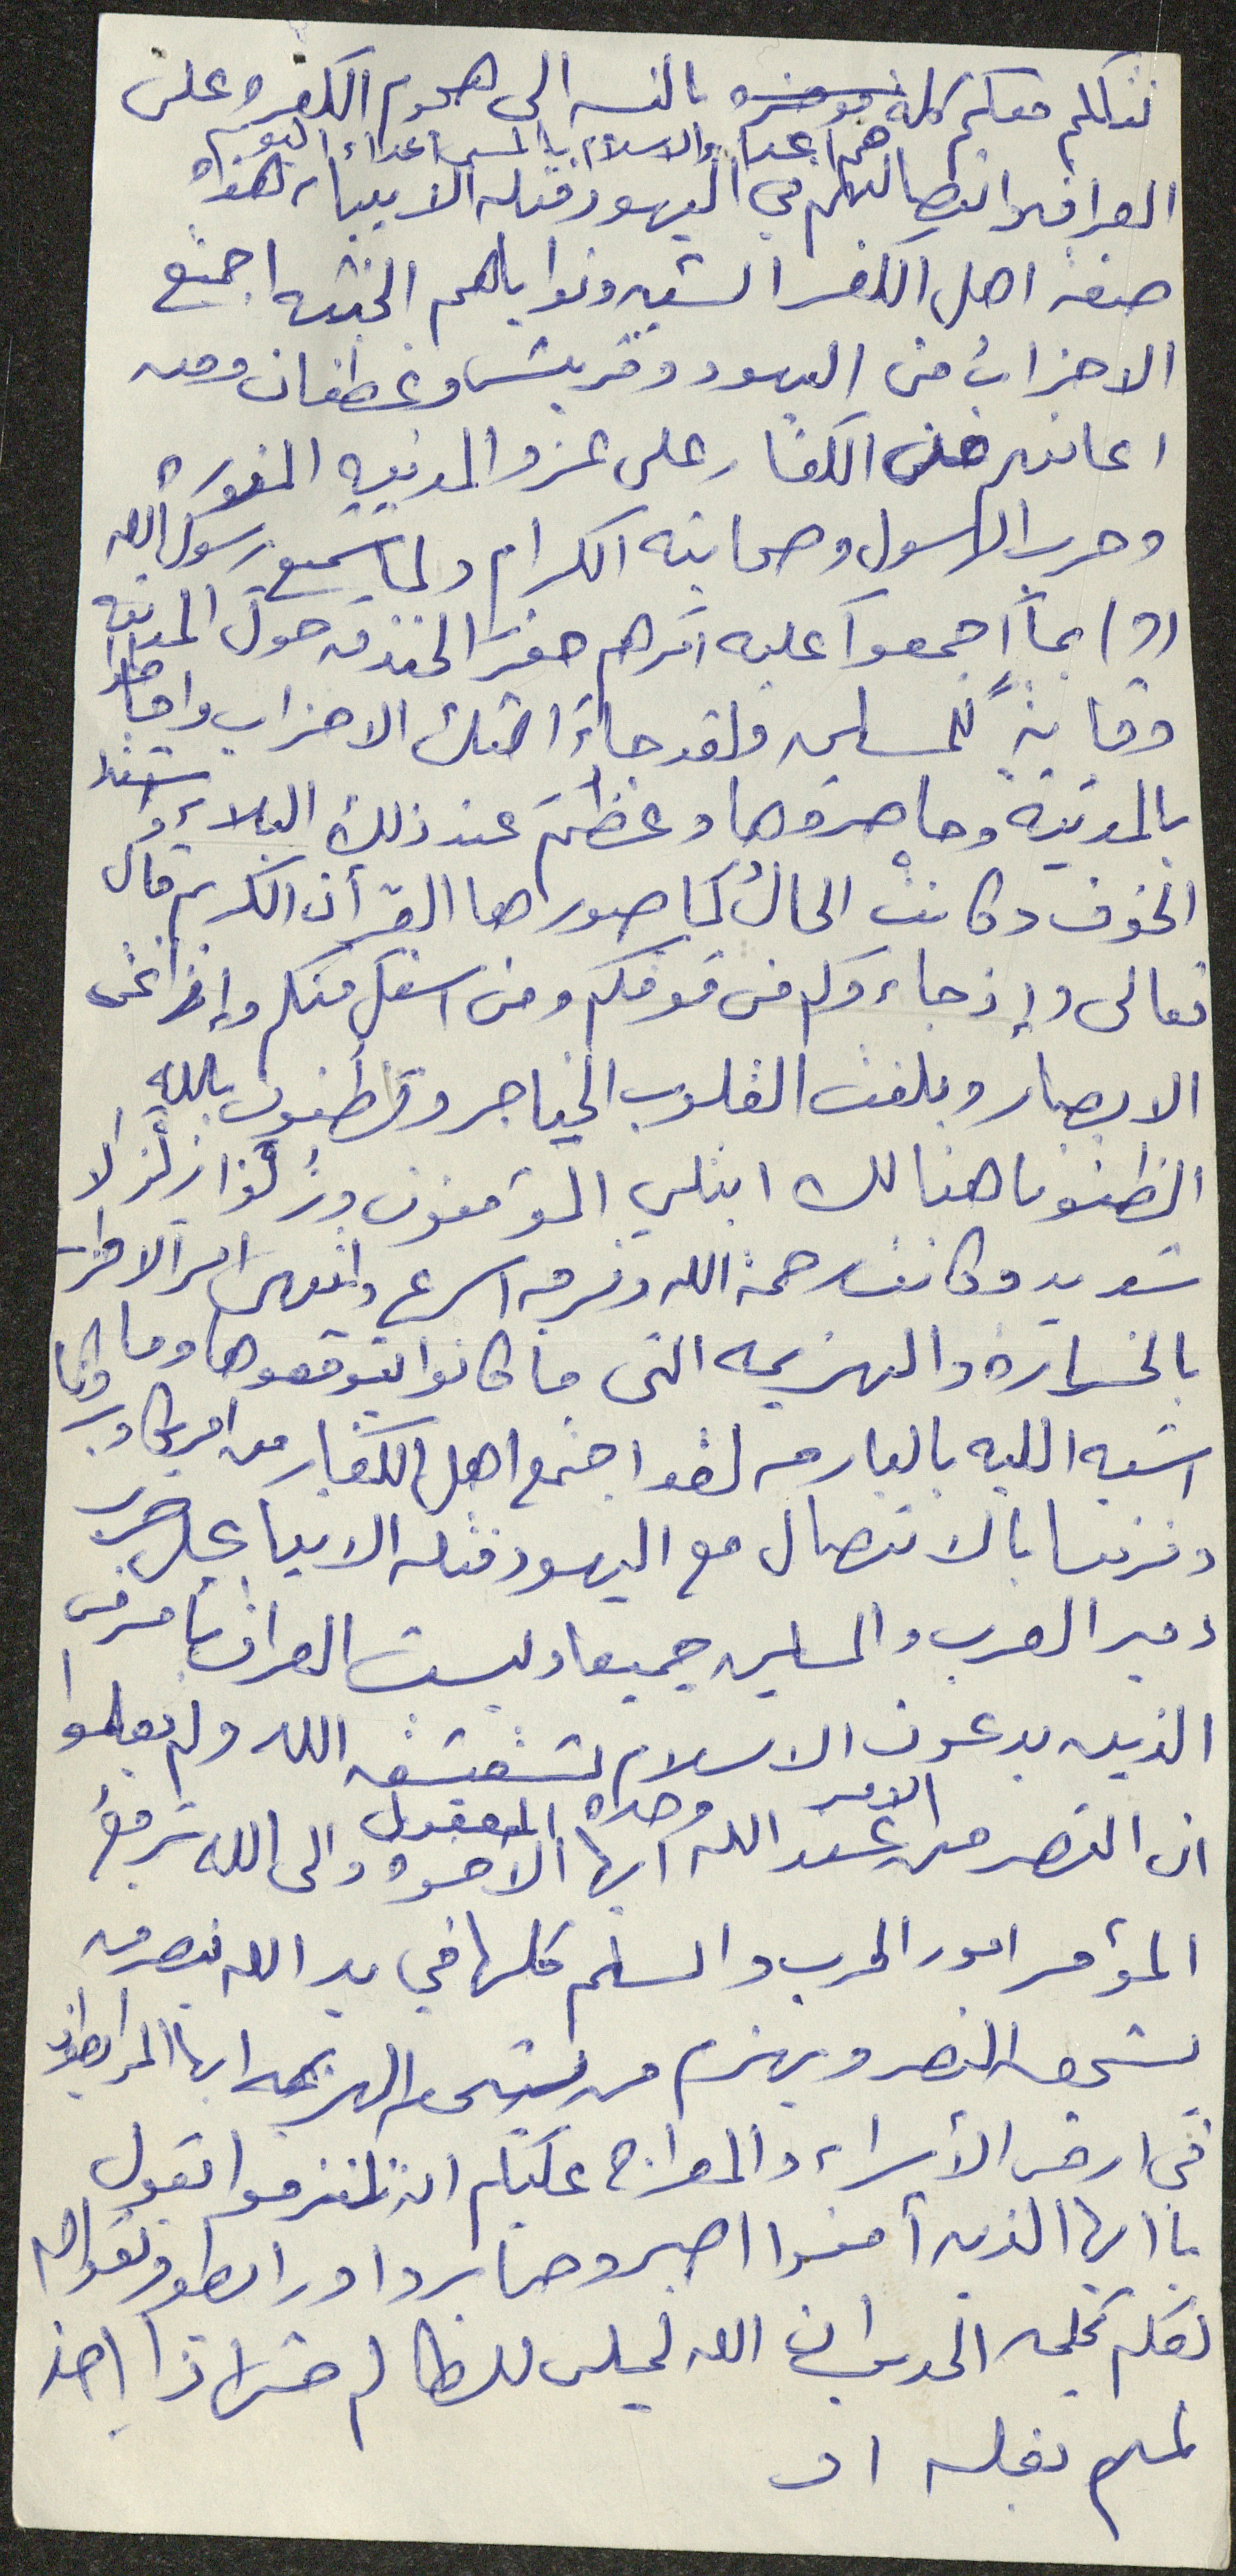 نتكلم معكم كلمة موجزه بالنسبه الى هجوم الكفر على
هم اعداء الاسلام بالامس اعداء اليوم
العراق واتصالهم في اليهود قتله الانبياء هذه
صفه اهل الكفر الشر ونواياهم الخبيثه اجتمع
الاحزاب من اليهود وقريش وغطفان ومن
اعانهم من الكفار على غزو المدينه المنوره
وحرب الرسول وصحابته الكرام ولما سمع رسول الله
(ص) بما اجمعوا عليه امرهم حفر الخندق حول المدينه
وقايةً للمسلمين ولقد جاءت تلك الاحزاب واحاطوا
بالمدينة وحاصروها وعظم عند ذلك البلاء واشتد
الخوف وكانت الحالُ كما صورها القرآن الكريم قال
تعالى وإذ جاءوكم من فوقكم ومن اسفل منكم وإذ زاغت
الابصار وبلغت القلوب الحناجر وتظنون بالله
الظنونا هنالك ابتلي المؤمنون وزلزلوا زلزالا
شديد وكانت رحمة الله وفرجه اسرع وانتهى امر الاحزاب
بالخساره والهزيمه التى ما كانوا يتوقعوها وما
اشبه الليله بالبارحه لقد اجتمع اهل الكفار من امريكا وبريطانيا
وفرنسا بالاتصال مع اليهود قتله الانبياء على حرب
دمير العرب والمسلمين جميعا وليست العراق بامر من
الذين يدعون الاسلام ولم يعلموا
ان النصر من عند الله وحده ايها الاخوه والى الله ترجعُ
الامر
المؤمر امور الحرب والسلم كلها في يد الله ينصر من
يستحق النصر ويهزم من يستحق الهزيمه ايها المرابطون
في ارض الأسراء والمعراج عليكم ان تلتزموا بقول
يا ايها الذين آمنوا اصبروا وصابروا ورابطوا وتقوا الله
لعلكم تفلحون الحديث ان الله ليملي للظالم حتى اذا اخذ
لم يفلته او